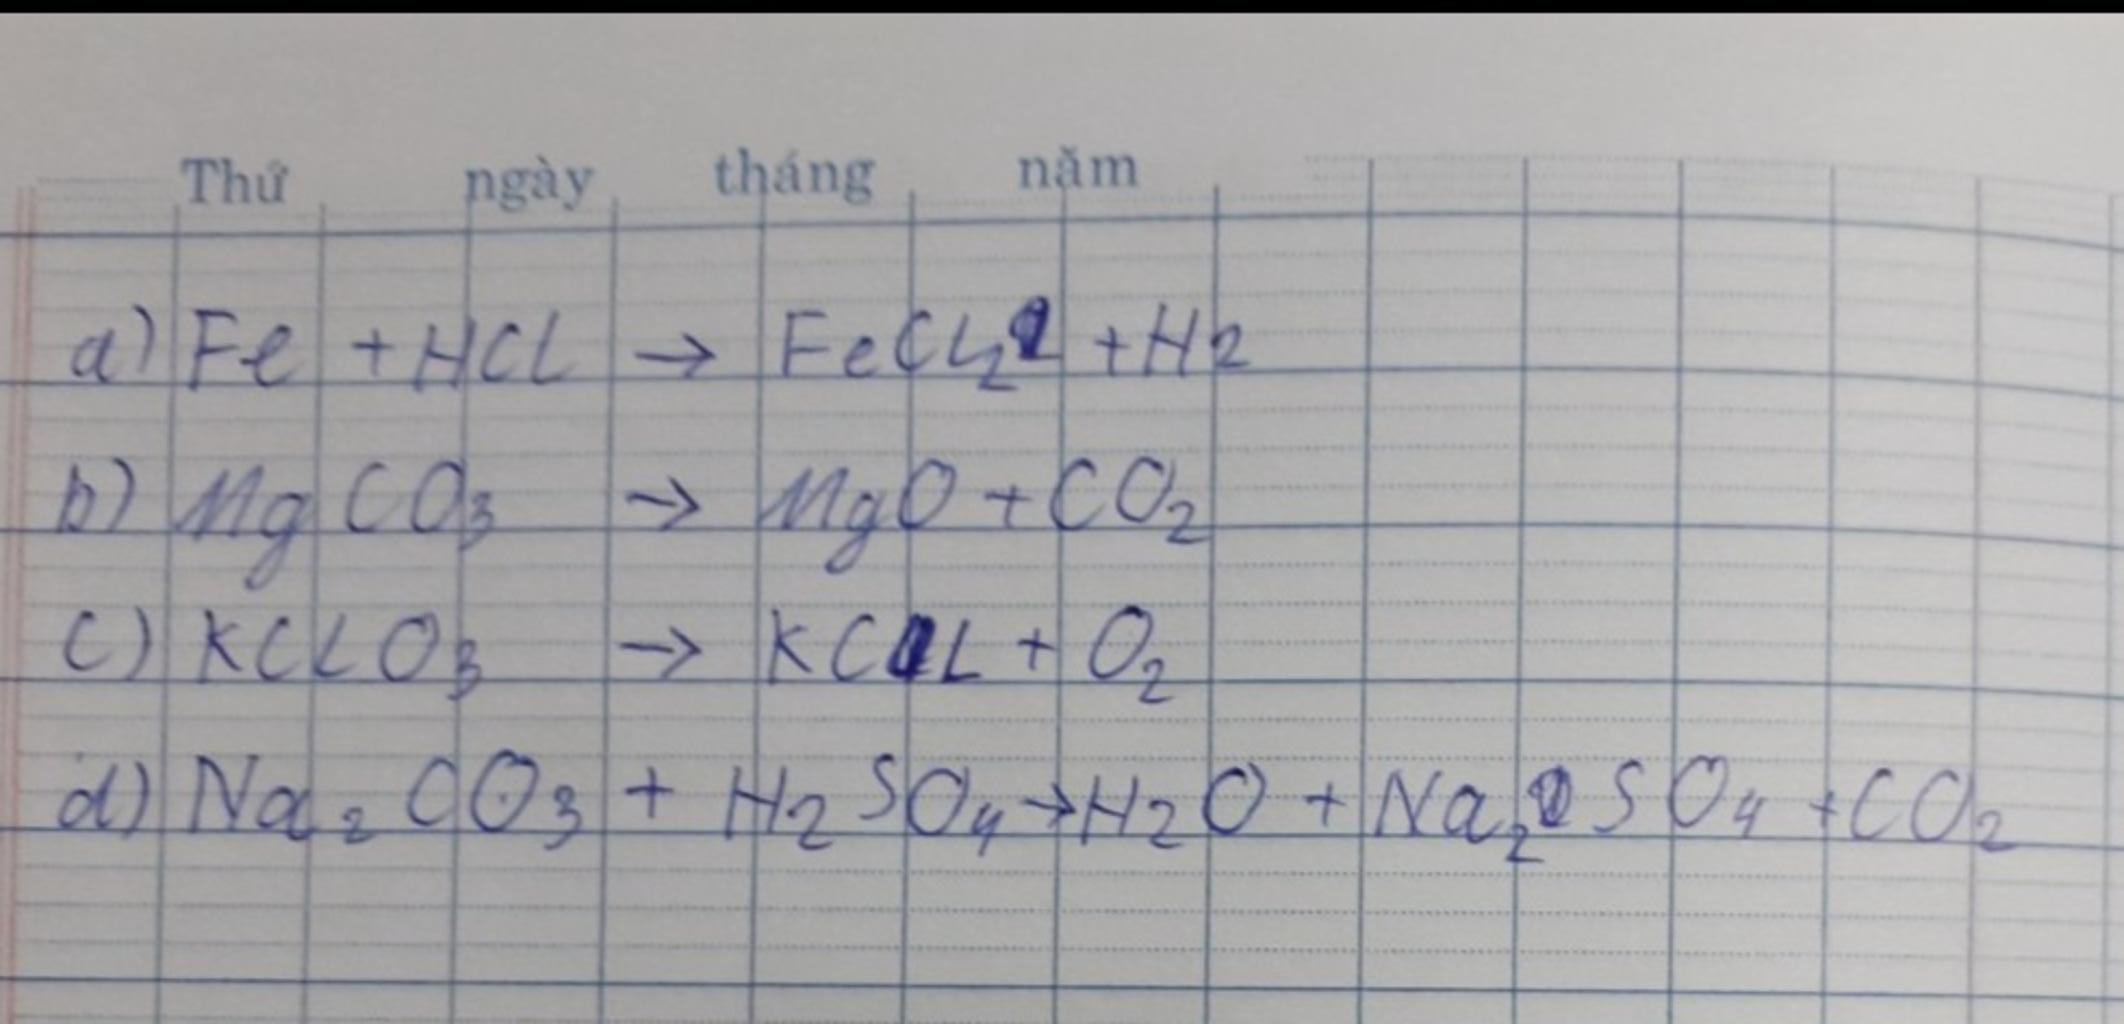 Thứ ngày tháng năm
a) Fe + HCl → FeCl₂ + H2
b) MgCO₃ → MgO + CO₂
c) KClO₃ → KCl + O₂
d) Na₂CO₃ + H₂SO₄ → H₂O + Na₂SO₄ + CO₂